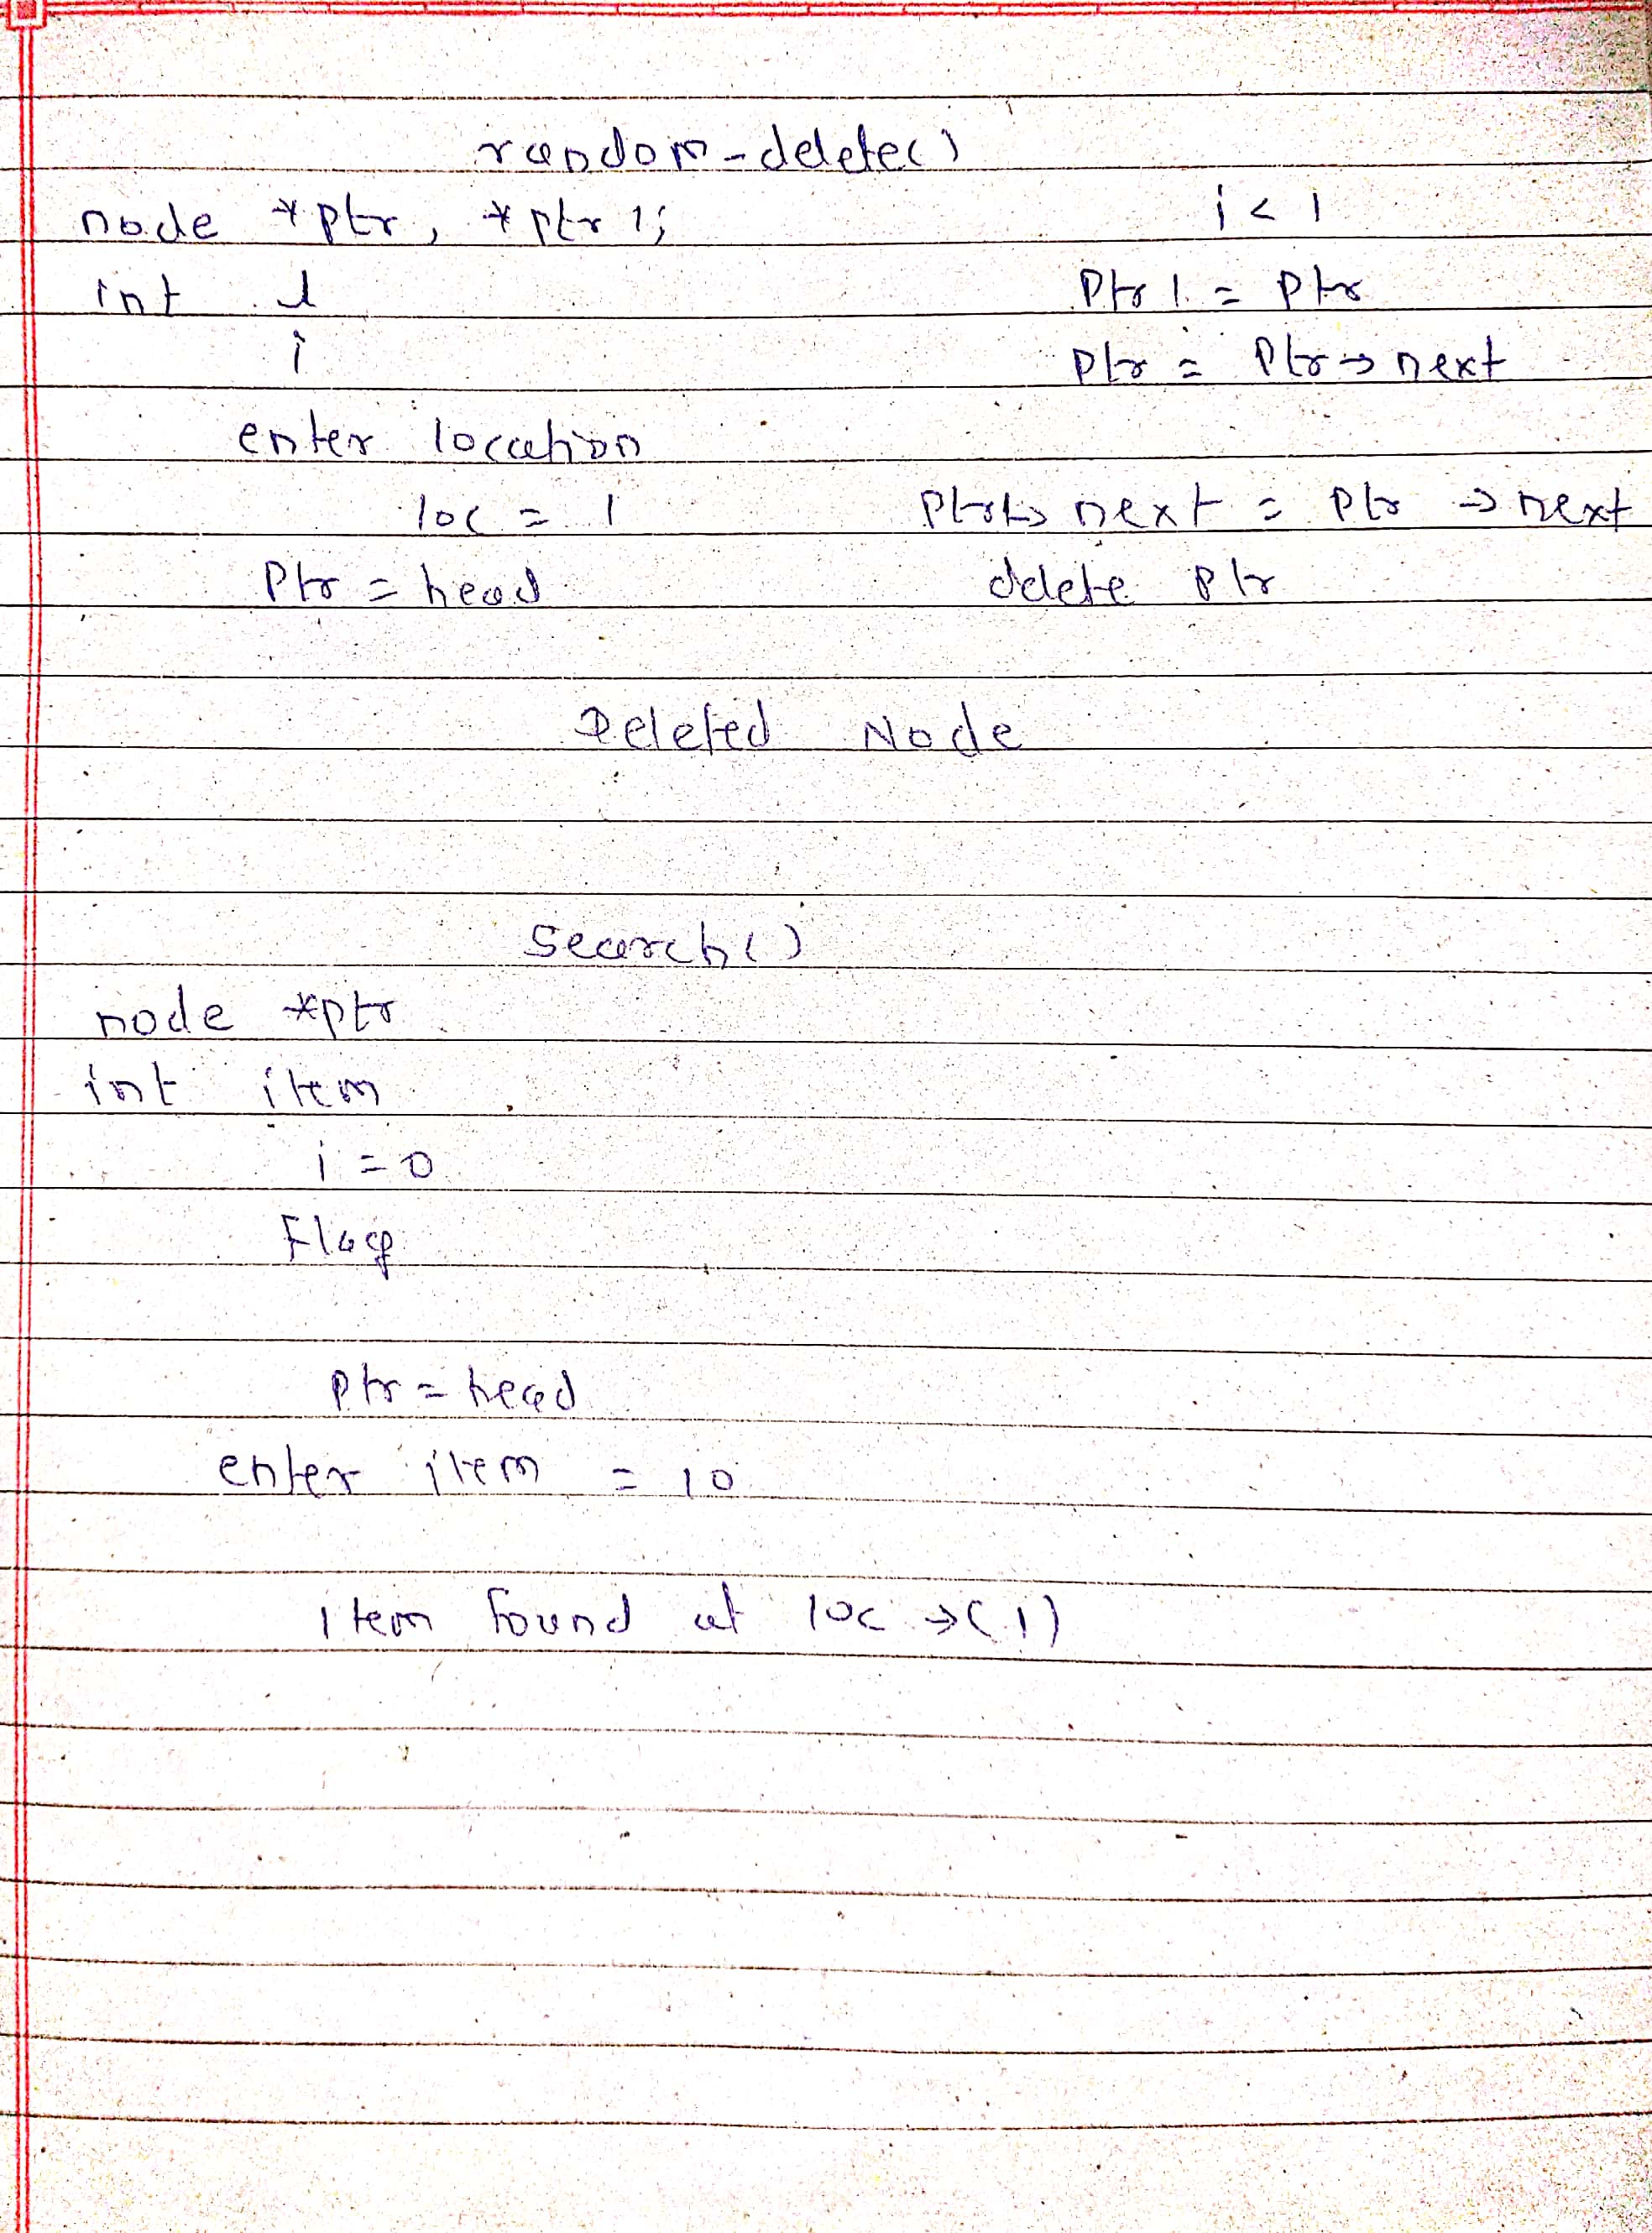 random-delete()
node *ptr, *ptr1;
int l
i
enter location
loc = 1
Ptr = head
i < 1
Ptr1 = Ptr
Ptr = Ptr→next
Ptr1→next = Ptr →next
delete Ptr
Deleted Node
Search()
node *ptr
int item
i = 0
Flag
ptr = head
enter item = 10
item found at loc →(1)